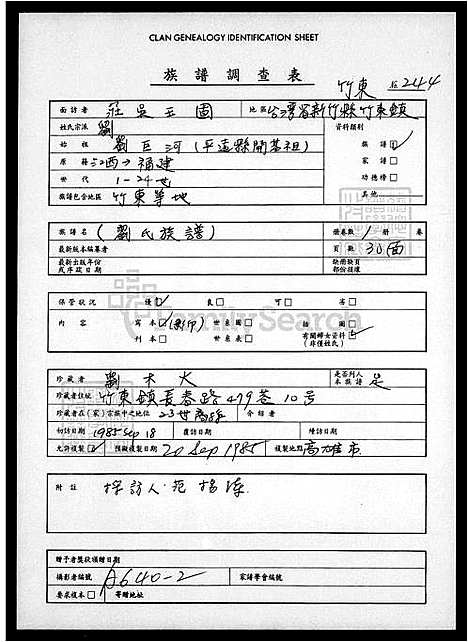 CLAN GENEALOGY IDENTIFICATION SHEET
族譜調查表
竹東 244
面訪者 莊吳玉固 地區 台灣省新竹縣竹東鎮
姓氏宗派 劉 資料類別
始祖 劉巨河(平遠縣開基祖) 族譜☑
原籍 江西→福建 家譜□
世代 1-24世 功德榜□
族譜包含地區 竹東等地 其他
族譜名 (劉氏族譜) 冊卷數 1 冊 卷
最新版本編纂者 頁數 30面
最新出版年份或序跋日期 缺冊缺頁部份描繪
保管狀況 優☑ 良□ 可□ 劣□
內容 寫本☑(影印) 世系圖□ 插圖□
刊本□ 世系表□ 有關婦女資料☑(非僅姓氏)
FamilySearch
珍藏者 劉木火 是否列入本族譜 是
珍藏者住址 竹東鎮長春路479巷10号
珍藏者在(家)宗族中之地位 23世裔孫 介紹者
初訪日期 1985 Sep 18 複訪日期 績訪日期
允許複製☑ 預擬複製日期 20 Sep 1985 複製地點 高雄市
附註 採訪人:范揚
贈予者獎狀頒贈日期
攝影者編號 A640-2 家譜學會編號
要求複本□ 寄贈地址